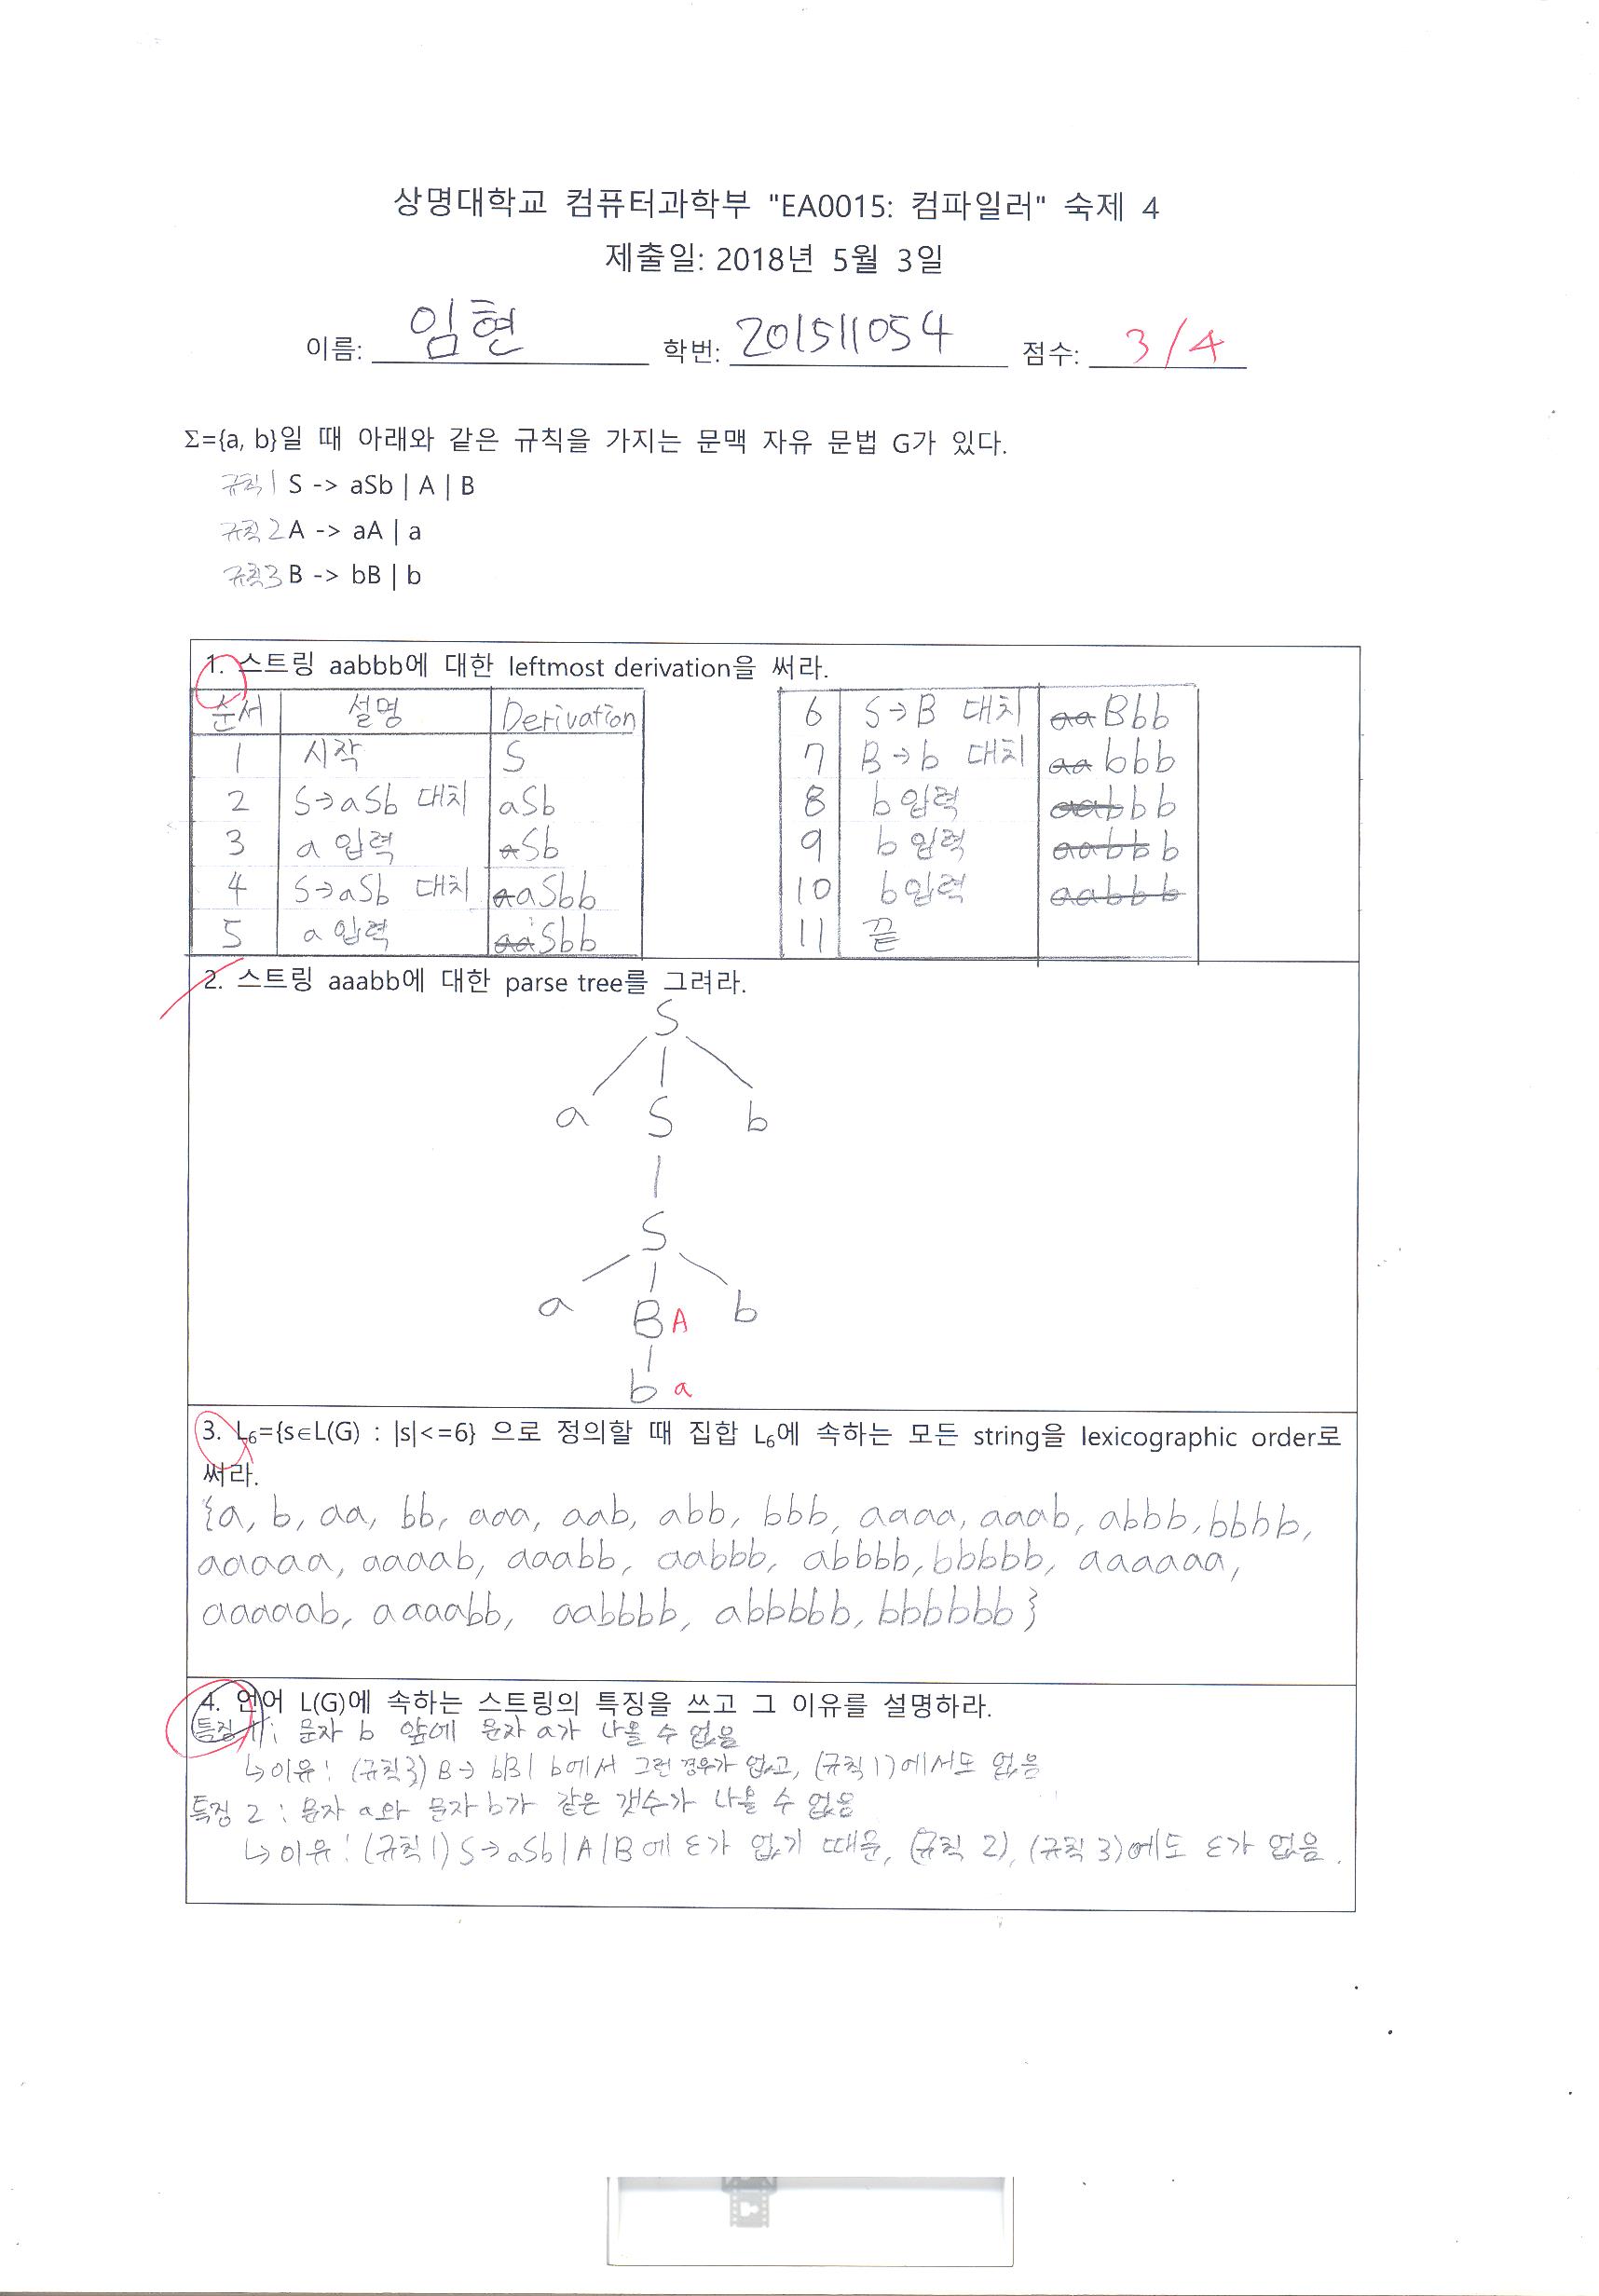 상명대학교 컴퓨터과학부 "EA0015: 컴파일러" 숙제 4
제출일: 2018년 5월 3일
이름: 임현 학번: 201511054 점수: 3/4
Σ={a, b}일 때 아래와 같은 규칙을 가지는 문맥 자유 문법 G가 있다.
규칙1 S -> aSb | A | B
규칙2 A -> aA | a
규칙3 B -> bB | b
1. 스트링 aabbb에 대한 leftmost derivation을 써라.
순서 설명 Derivation
1 시작 S
2 S→aSb 대치 aSb
3 a 입력 aSb
4 S→aSb 대치 aaSbb
5 a 입력 aaSbb
6 S→B 대치 aaBbb
7 B→b 대치 aabbb
8 b입력 aabbb
9 b입력 aabbb
10 b입력 aabbb
11 끝
2. 스트링 aaabb에 대한 parse tree를 그려라.
S
a S b
S
a B A b
b a
3. L6={s∈L(G) : |s|<=6} 으로 정의할 때 집합 L6에 속하는 모든 string을 lexicographic order로
써라.
{a, b, aa, bb, aaa, aab, abb, bbb, aaaa, aaab, abbb, bbbb,
aaaaa, aaaab, aaabb, aabbb, abbbb, bbbbb, aaaaaa,
aaaaab, aaaabb, aabbbb, abbbbb, bbbbbb}
4. 언어 L(G)에 속하는 스트링의 특징을 쓰고 그 이유를 설명하라.
특징 1: 문자 b 앞에 문자 a가 나올 수 없음
↳이유: (규칙3) B→bB| b에서 그런 경우가 없고, (규칙1)에서도 없음
특징 2: 문자 a와 문자 b가 같은 갯수가 나올 수 없음
↳이유: (규칙1) S→aSb|A|B에 ε가 없기 때문, (규칙 2), (규칙 3)에도 ε가 없음.